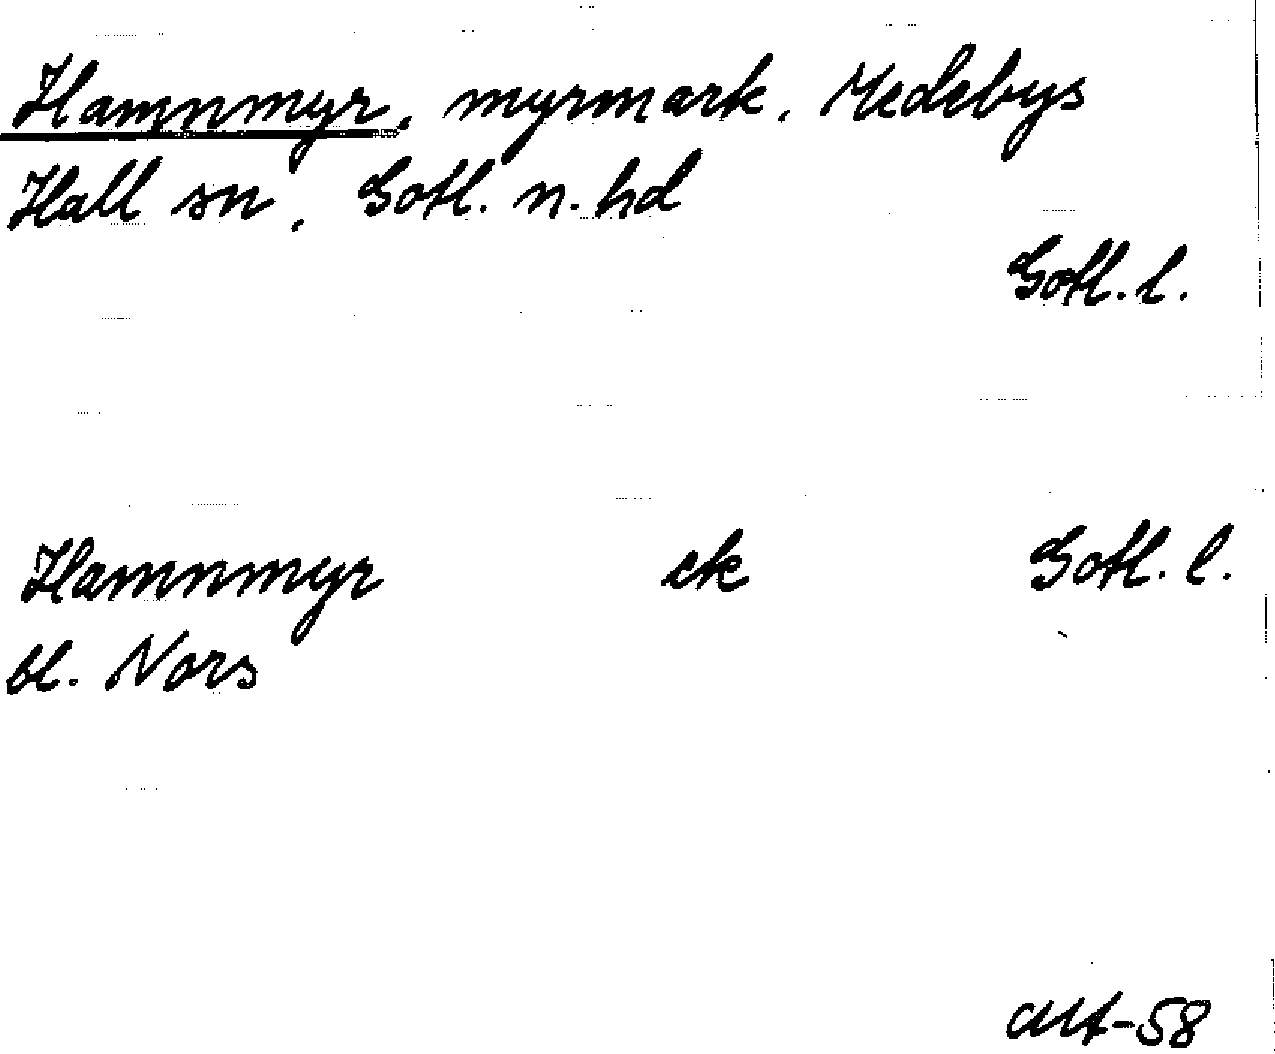 Hamnmyr, myrmark, Medebys
Hall sn, Gotl. n. hd
Gotl. l.
Hamnmyr ek Gotl. l.
bl. Nors
-58